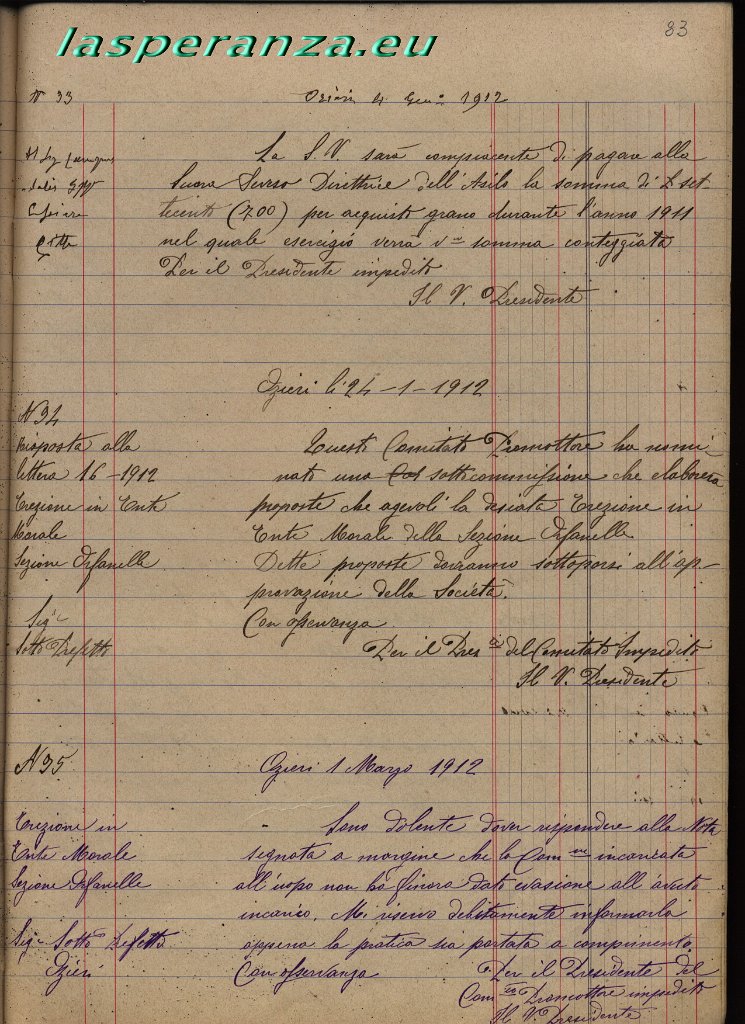 lasperanza.eu
83
N 33
Ozieri 4 Genn 1912
La S. V. sarà compiacente di pagare alla
Suora Direttrice dell'Asilo la somma di £ set-
tecento (700) per acquisto grano durante l'anno 1911
nel quale esercizio verrà somma conteggiata
Per il Presidente impedito
Il V. Presidente
Ozieri li 24-1-1912
N 34
Risposta alla
lettera 16-1912
Erezione in Ente
Morale
Sezione Orfanelle
Sig.
Sotto Prefetto
Questo Comitato Promottore ha nomi-
nato una sottocommissione che elaborerà
proposte che agevoli la desiata Erezione in
Ente Morale della Sezione Orfanelle
Dette proposte dovranno sottoporsi all'ap-
provazione della Società.
Con osservanza
Per il Pres del Comitato Impedito
Il V. Presidente
N 35
Ozieri 1 Marzo 1912
Erezione in
Ente Morale
Sezione Orfanelle
Sig. Sotto Prefetto
Ozieri
- Sono dolente dover rispondere alla Nota
segnata a margine che la Com.ne incaricata
all'uopo non ha finora dato evasione all'avuto
incarico. Mi riservo debitamente informarla
appena la pratica sia portata a compimento.
Con osservanza Per il Presidente del
Com.to Promottore impedito
Il V. Presidente